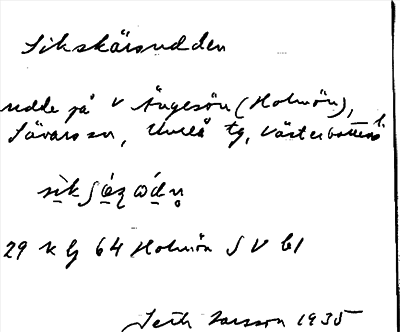 Sikskärsudden
udde på V Ängesön (Holmön),
Sävars sn, Umeå tg, Västerbottens l.
29 k lj 64 Holmön S V bl
Seth Larsson 1935